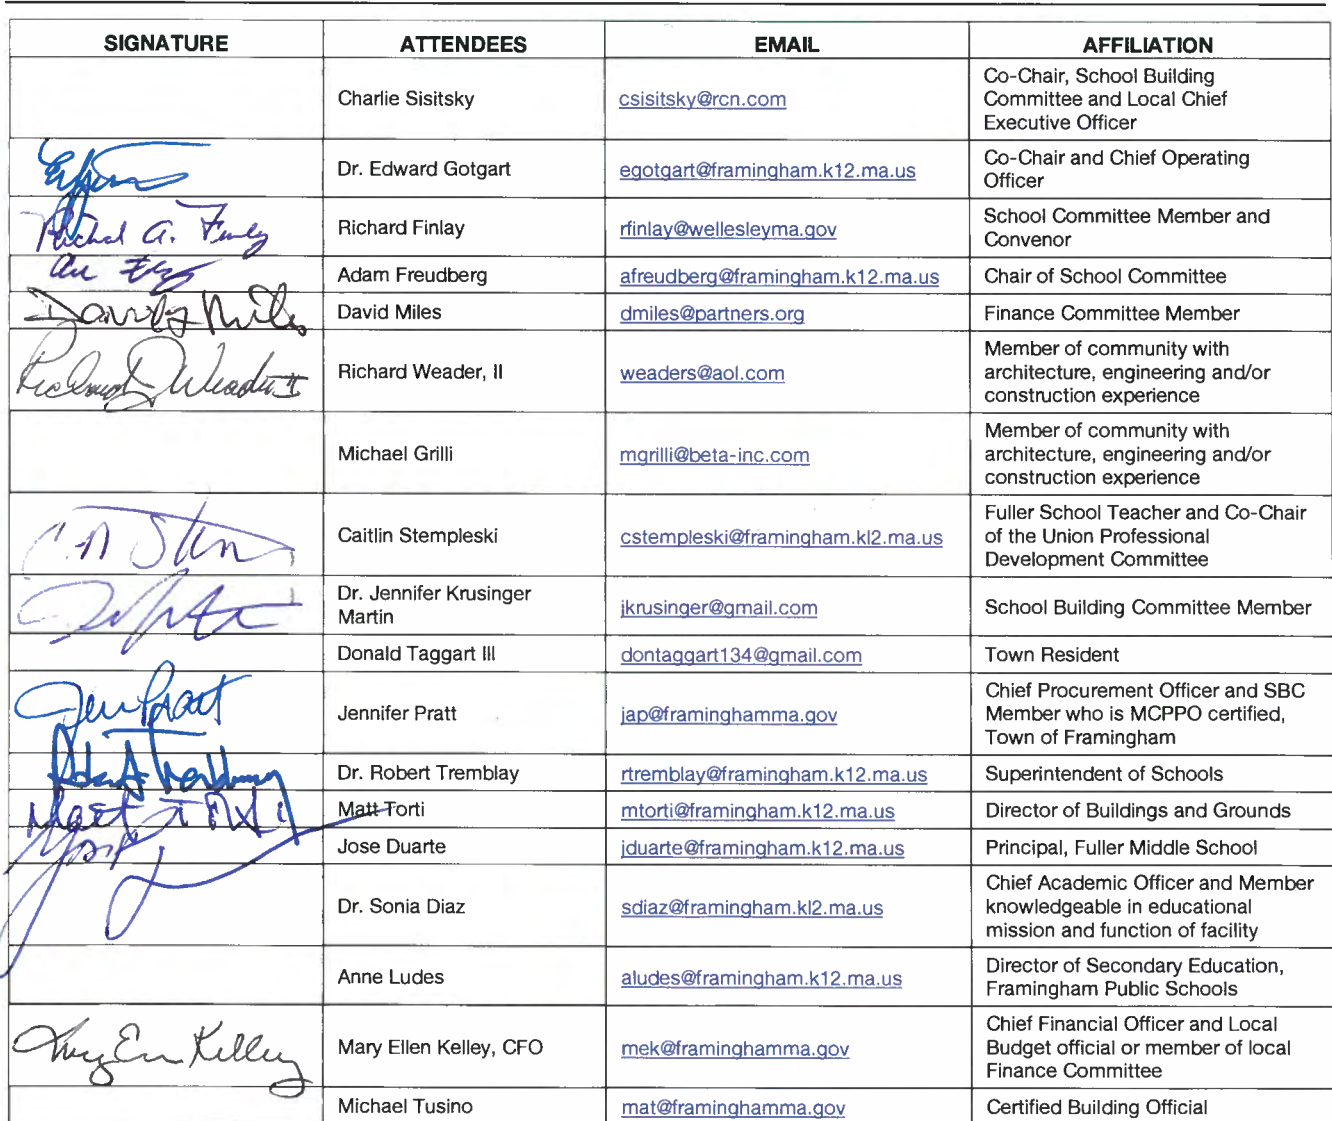 SIGNATURE ATTENDEES EMAIL AFFILIATION
Charlie Sisitsky csisitsky@rcn.com Co-Chair, School Building
Committee and Local Chief
Executive Officer
Dr. Edward Gotgart egotgart@framingham.k12.ma.us Co-Chair and Chief Operating
Officer
Richard A. Finlay Richard Finlay rfinlay@wellesleyma.gov School Committee Member and
Convenor
Adam Freudberg afreudberg@framingham.k12.ma.us Chair of School Committee
David Miles David Miles dmiles@partners.org Finance Committee Member
Richard Weader II Richard Weader, II weaders@aol.com Member of community with
architecture, engineering and/or
construction experience
Michael Grilli mgrilli@beta-inc.com Member of community with
architecture, engineering and/or
construction experience
Caitlin Stempleski cstempleski@framingham.kl2.ma.us Fuller School Teacher and Co-Chair
of the Union Professional
Development Committee
Dr. Jennifer Krusinger
Martin jkrusinger@gmail.com School Building Committee Member
Donald Taggart III dontaggart134@gmail.com Town Resident
Jen Pratt Jennifer Pratt jap@framinghamma.gov Chief Procurement Officer and SBC
Member who is MCPPO certified,
Town of Framingham
Dr. Robert Tremblay rtremblay@framingham.k12.ma.us Superintendent of Schools
Matt Torti Matt Torti mtorti@framingham.k12.ma.us Director of Buildings and Grounds
Jose Duarte jduarte@framingham.k12.ma.us Principal, Fuller Middle School
Dr. Sonia Diaz sdiaz@framingham.kl2.ma.us Chief Academic Officer and Member
knowledgeable in educational
mission and function of facility
Anne Ludes aludes@framingham.k12.ma.us Director of Secondary Education,
Framingham Public Schools
Mary Ellen Kelley Mary Ellen Kelley, CFO mek@framinghamma.gov Chief Financial Officer and Local
Budget official or member of local
Finance Committee
Michael Tusino mat@framinghamma.gov Certified Building Official